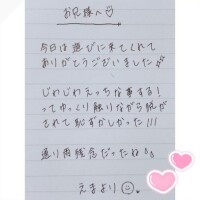 お兄様へ♡
今日は遊びに来てくれて
ありがとうございました
じわじわえっちな事する!
ってゆっくり触りながら脱が
されて恥ずかしかった!!!
通り雨残念だったね
えまより